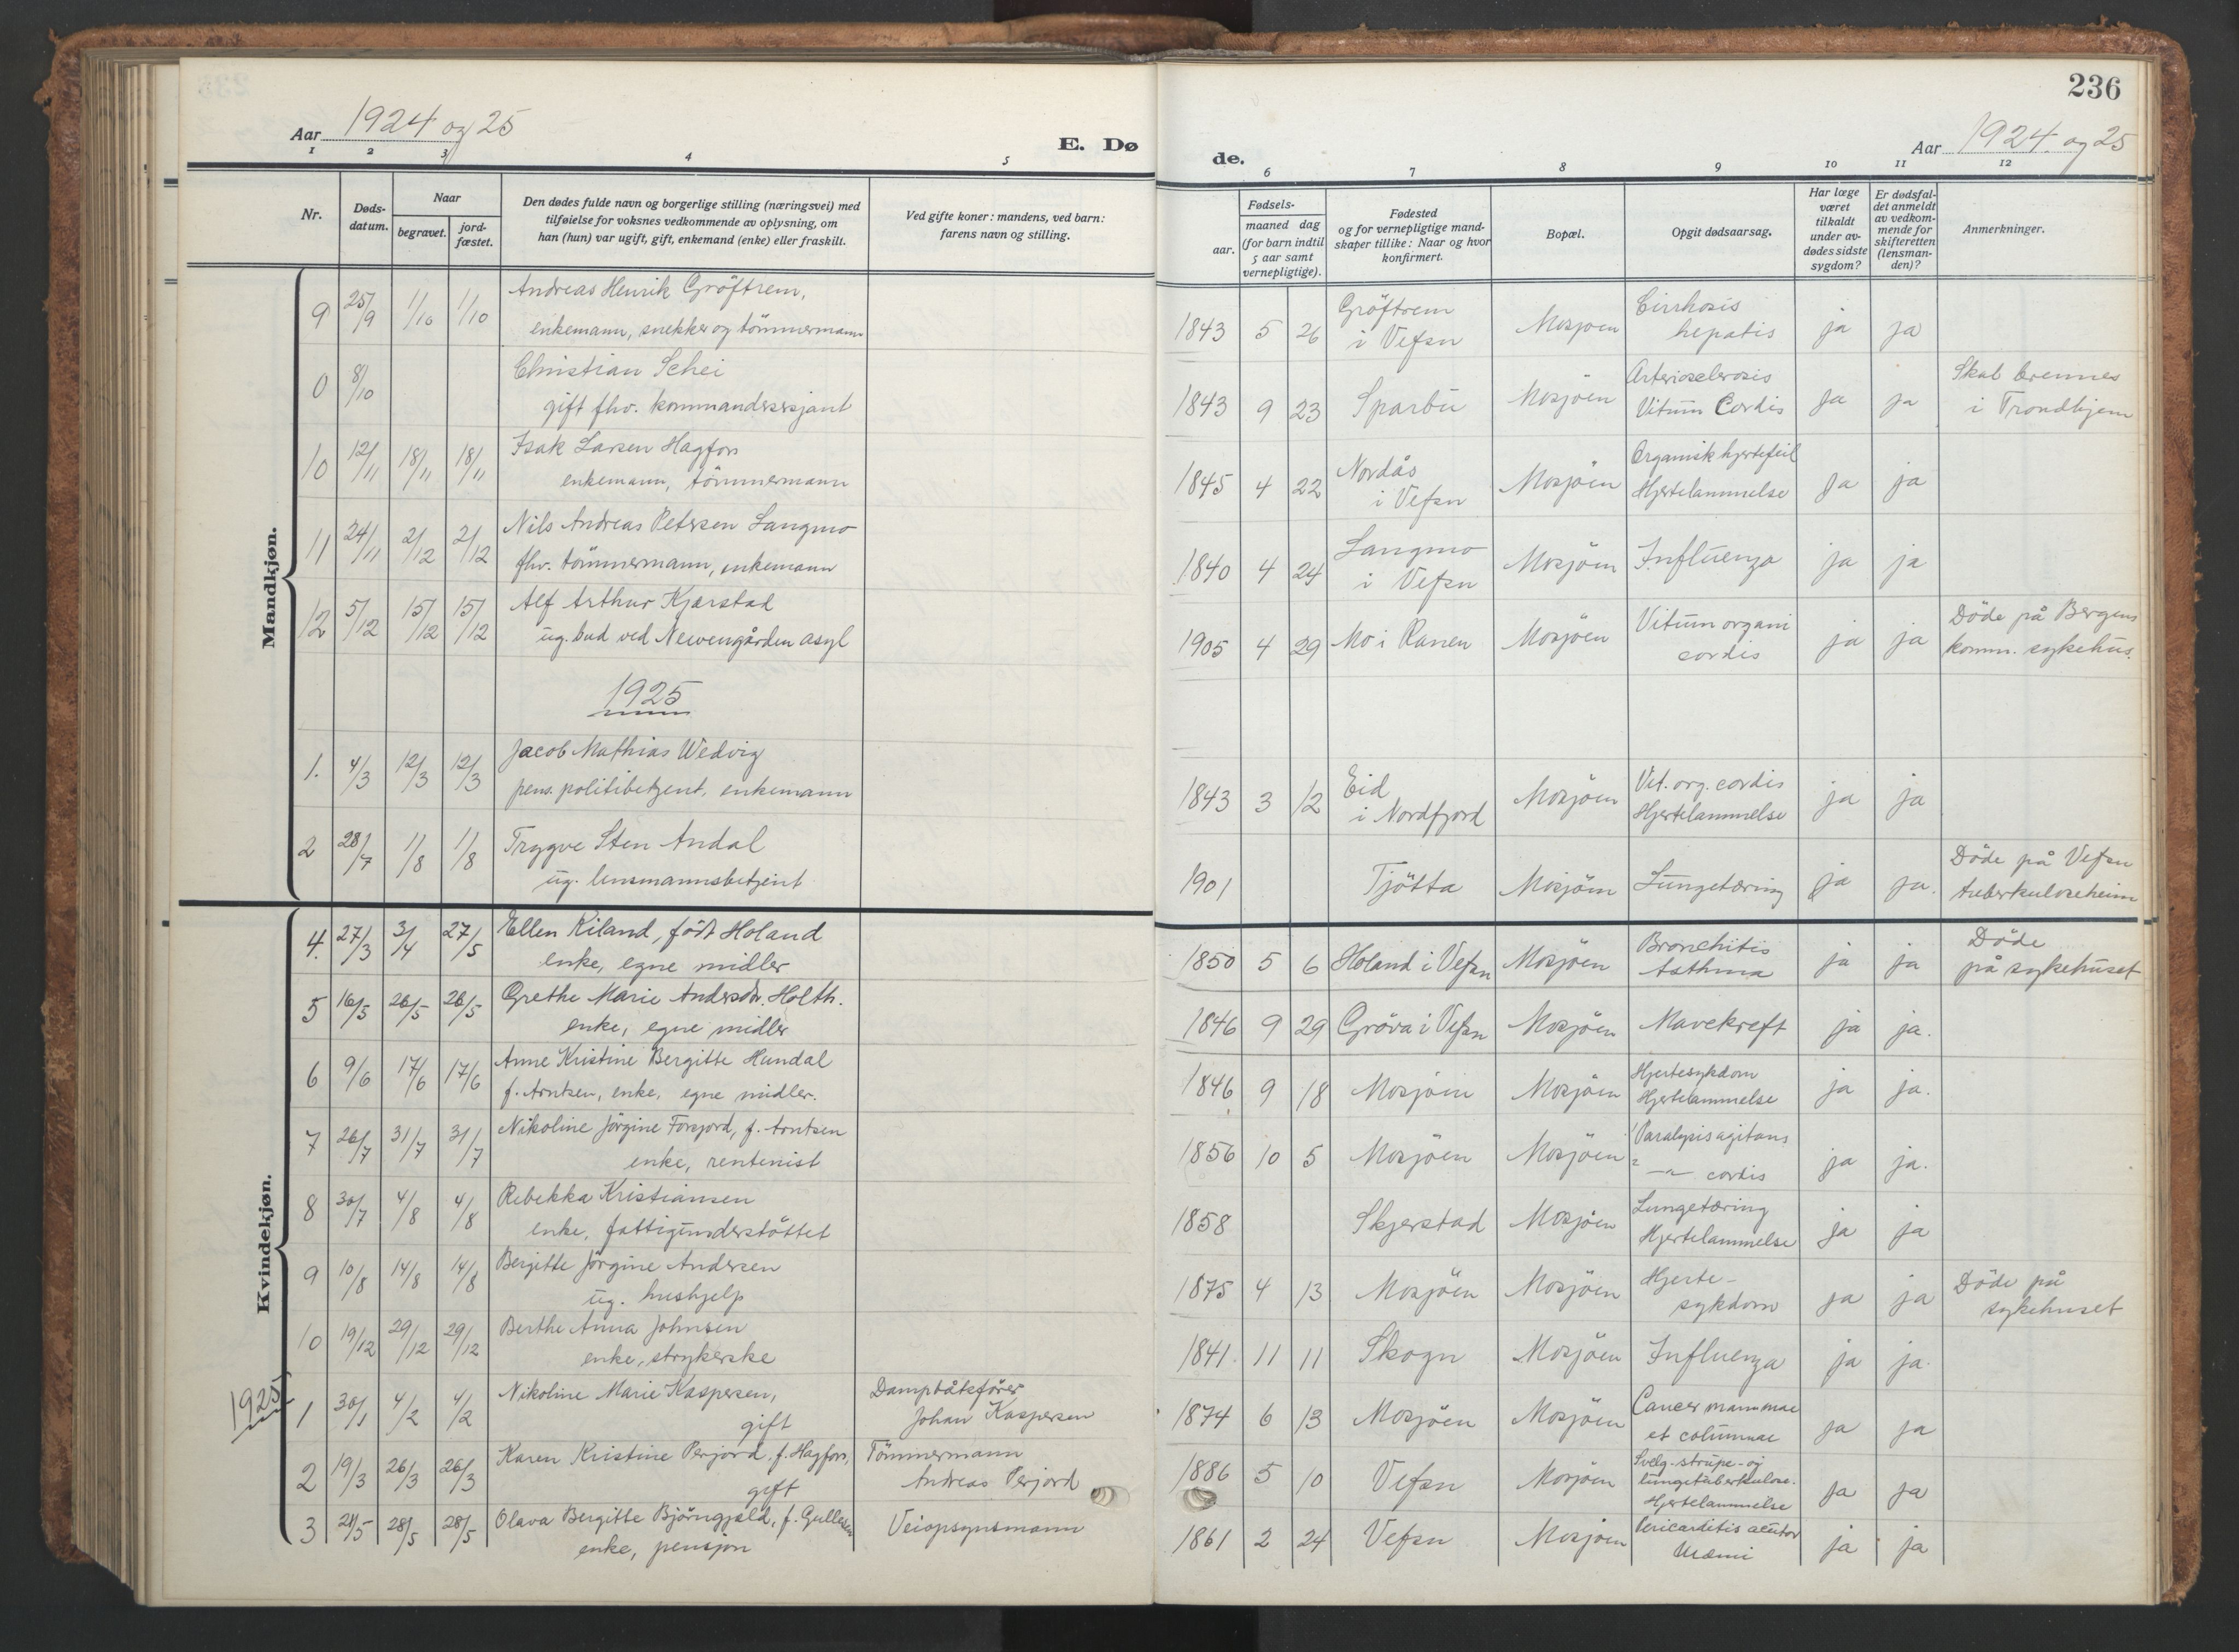 236
Aar 1924 og 25
E. Dø
de.
Aar 1924 og 25
1 2 3 4 5
6 7 8 9 10 11 12
Nr.
Døds-
datum.
Naar
begravet.
jord-
fæstet.
Den dødes fulde navn og borgerlige stilling (næringsvei) med
tilføielse for voksnes vedkommende av oplysning, om
han (hun) var ugift, gift, enkemand (enke) eller fraskilt.
Ved gifte koner: mandens, ved barn:
farens navn og stilling.
Fødsels-
aar.
maaned dag
(for barn indtil
5 aar samt
vernepligtige).
Fødested
og for vernepligtige mand-
skaper tillike: Naar og hvor
konfirmert.
Bopæl.
Opgit dødsaarsag.
Har læge
været
tilkaldt
under av-
dødes sidste
sygdom?
Er dødsfal-
det anmeldt
av vedkom-
mende for
skifteretten
(lensman-
den)?
Anmerkninger.
Mandkjøn.
9 25/9 1/10 1/10 Andreas Henrik Gröftrem,
enkemann, snekker og tömmermann
1843 5 26 Gröftrem
i Vefsn
Mosjöen Cirrhosis
hepatis
ja ja
0 8/10 Christian Schei
gift fhv. kommandersersjant
1843 9 23 Sparbu Mosjöen Arteriosclerosis
Vitium Cordis
ja ja Skal brennes
i Trondhjem
10 12/11 18/11 18/11 Isak Larsen Hagfors
enkemann, tömmermann
1845 4 22 Nordås
i Vefsn
Mosjöen Organisk hjertefeil
Hjertelammelse
ja ja
11 24/11 2/12 2/12 Nils Andreas Petersen Langmo
fhv. tömmermann, enkemann
1840 4 24 Langmo
i Vefsn
Mosjöen Influenza ja ja
12 5/12 15/12 15/12 Alf Arthur Kjærstad
ug. bud ved Nevengården asyl
1905 4 29 Mo i Ranen Mosjöen Vitium organi
cordis
ja ja Döde på Bergens
komm. sykehus.
1925
1. 4/3 12/3 12/3 Jacob Mathias Wedvig
pens. politibetjent, enkemann
1843 3 12 Eid
i Nordfjord
Mosjöen Vit. org. cordis
Hjertelammelse
ja ja
2 28/7 1/8 1/8 Trygve Sten Andal
ug. lensmannsbetjent
1901 Tjötta Mosjöen Lungetæring ja ja. Döde på Vefsn
tuberkuloseheim
Kvindekjøn.
4. 27/3 3/4 27/5 Ellen Kiland, födt Holand
enke, egne midler
1850 5 6 Holand i Vefsn Mosjöen Bronchitis
Asthma
ja ja Döde
på sykehuset
5 16/5 26/5 26/5 Grethe Marie Andersdr. Holth.
enke, egne midler
1846 9 29 Gröva i Vefsn Mosjöen Mavekreft ja ja.
6 9/6 17/6 17/6 Anne Kristine Bergitte Hundal
f. Arntsen, enke, egne midler.
1846 9 18 Mosjöen Mosjöen Hjertesykdom
Hjertelammelse
ja ja.
7 26/7 31/7 31/7 Nikoline Jörgine Forsjord, f. Arntsen
enke, rentenist
1856 10 5 Mosjöen Mosjöen Paralysis agitans
—"— cordis
ja ja.
8 30/7 4/8 4/8 Rebekka Kristiansen
enke, fattigunderstöttet
1858 Skjerstad Mosjöen Lungetæring
Hjertelammelse
ja ja
9 10/8 14/8 14/8 Bergitte Jörgine Andersen
ug. hushjelp
1875 4 13 Mosjöen Mosjöen Hjerte-
sykdom
ja ja Döde på
sykehuset
10 19/12 29/12 29/12 Berthe Anna Johnsen
enke, strykerske
1841. 11 11 Skogn Mosjöen Influenza ja ja.
1925
1 30/1 4/2 4/2 Nikoline Marie Kaspersen,
gift
Dampbåtsförer
Johan Kaspersen
1874 6 13 Mosjöen Mosjöen Cancer mammae
et columnae
ja ja
2 19/3 26/3 26/3 Karen Kristine Perjord, f. Hagfors,
gift
Tömmermann
Andreas Perjord
1886 5 10 Vefsn Mosjöen Svelg-strupe-og
lungetuberkulose.
Hjertelammelse
ja ja
3 21/5 28/5 28/5 Olava Bergitte Björngjeld, f. Gullesen
enke, pensjon
Veiopsynsmann
1861 2 24 Vefsn Mosjöen Pericarditis acutor
Uræmi
ja ja